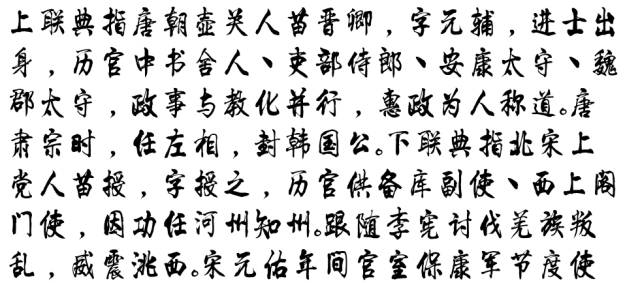 上联典指唐朝壶关人苗晋卿，字元辅，进士出
身，历官中书舍人、吏部侍郎、安康太守、魏
郡太守，政事与教化并行，惠政为人称道。唐
肃宗时，任左相，封韩国公。下联典指北宋上
党人苗授，字授之，历官供备库副使、西上阁
门使，因功任河州知州。跟随李宪讨伐羌族叛
乱，威震洮西。宋元佑年间官室保康军节度使